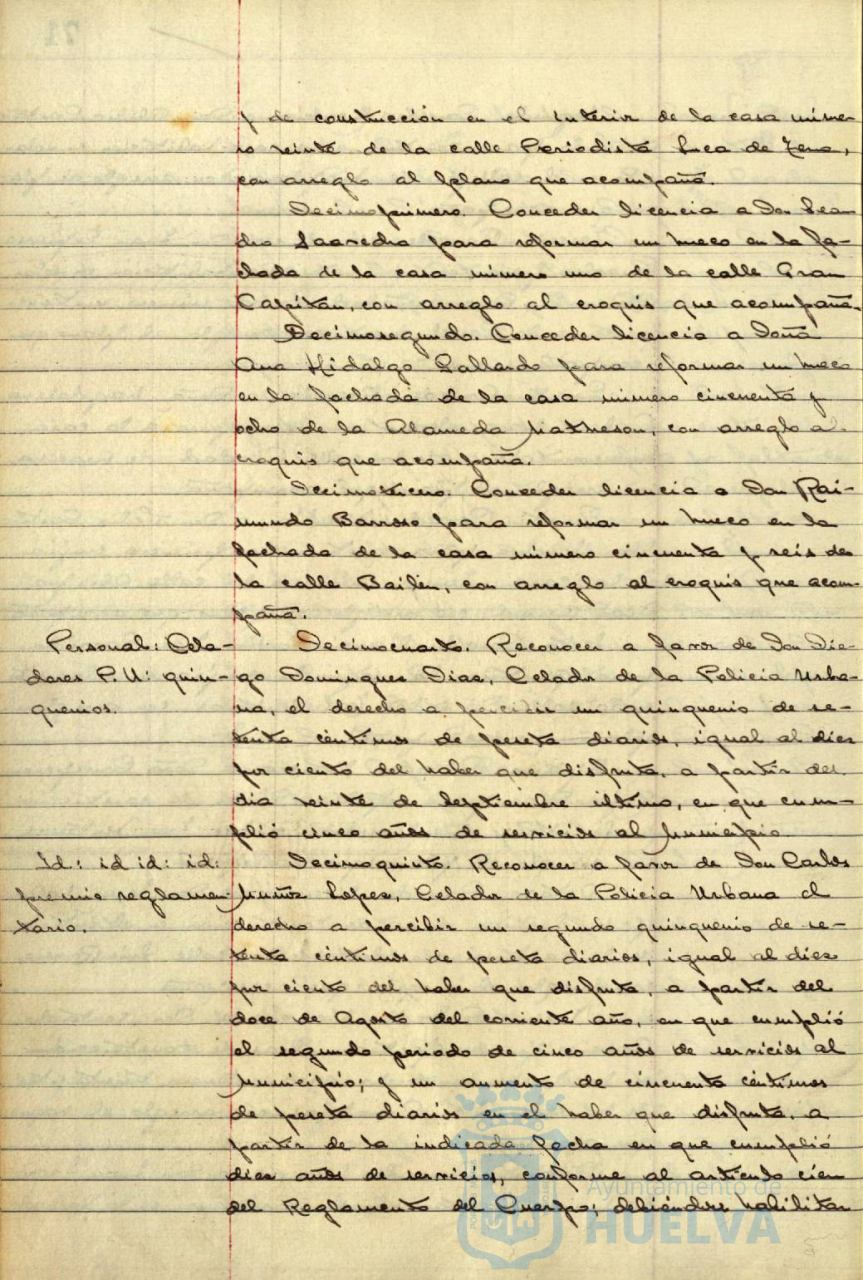 y de construcción en el interior de la casa núme-
ro veinte de la calle Periodista Luca de Tena,
con arreglo al plano que acompaña.
Decimoprimero. Conceder licencia a Don Lean-
dro Saavedra para reformar un hueco en la fa-
chada de la casa número uno de la calle Gran
Capitán, con arreglo al croquis que acompaña.
Decimosegundo. Conceder licencia a Doña
Ana Hidalgo Gallardo para reformar un hueco
en la fachada de la casa número cincuenta y
ocho de la Alameda Matheson, con arreglo al
croquis que acompaña.
Decimotercero. Conceder licencia a Don Rai-
mundo Barroso para reformar un hueco en la
fachada de la casa número cincuenta y seis de
la calle Bailén, con arreglo al croquis que acom-
paña.
Personal: Cela-
dores P.U: quin-
quenios.
Decimocuarto. Reconocer a favor de Don Die-
go Domingues Dias, Celador de la Policía Urba-
na, el derecho a percibir un quinquenio de se-
tenta céntimos de peseta diarios, igual al diez
por ciento del haber que disfruta, a partir del
día veinte de Septiembre último, en que cum-
plió cinco años de servicios al Municipio.
Id: id id: id:
premio reglamen-
tario.
Decimoquinto. Reconocer a favor de Don Carlos
Muñoz Lopez, Celador de la Policía Urbana el
derecho a percibir un segundo quinquenio de se-
tenta céntimos de peseta diarios, igual al diez
por ciento del haber que disfruta, a partir del
doce de Agosto del corriente año, en que cumplió
el segundo periodo de cinco años de servicios al
Municipio; y un aumento de cincuenta céntimos
de peseta diarios en el haber que disfruta, a
partir de la indicada fecha en que cumplió
diez años de servicios, conforme al artículo cien
del Reglamento del Cuerpo; debiéndose habilitar
Ayuntamiento de
HUELVA